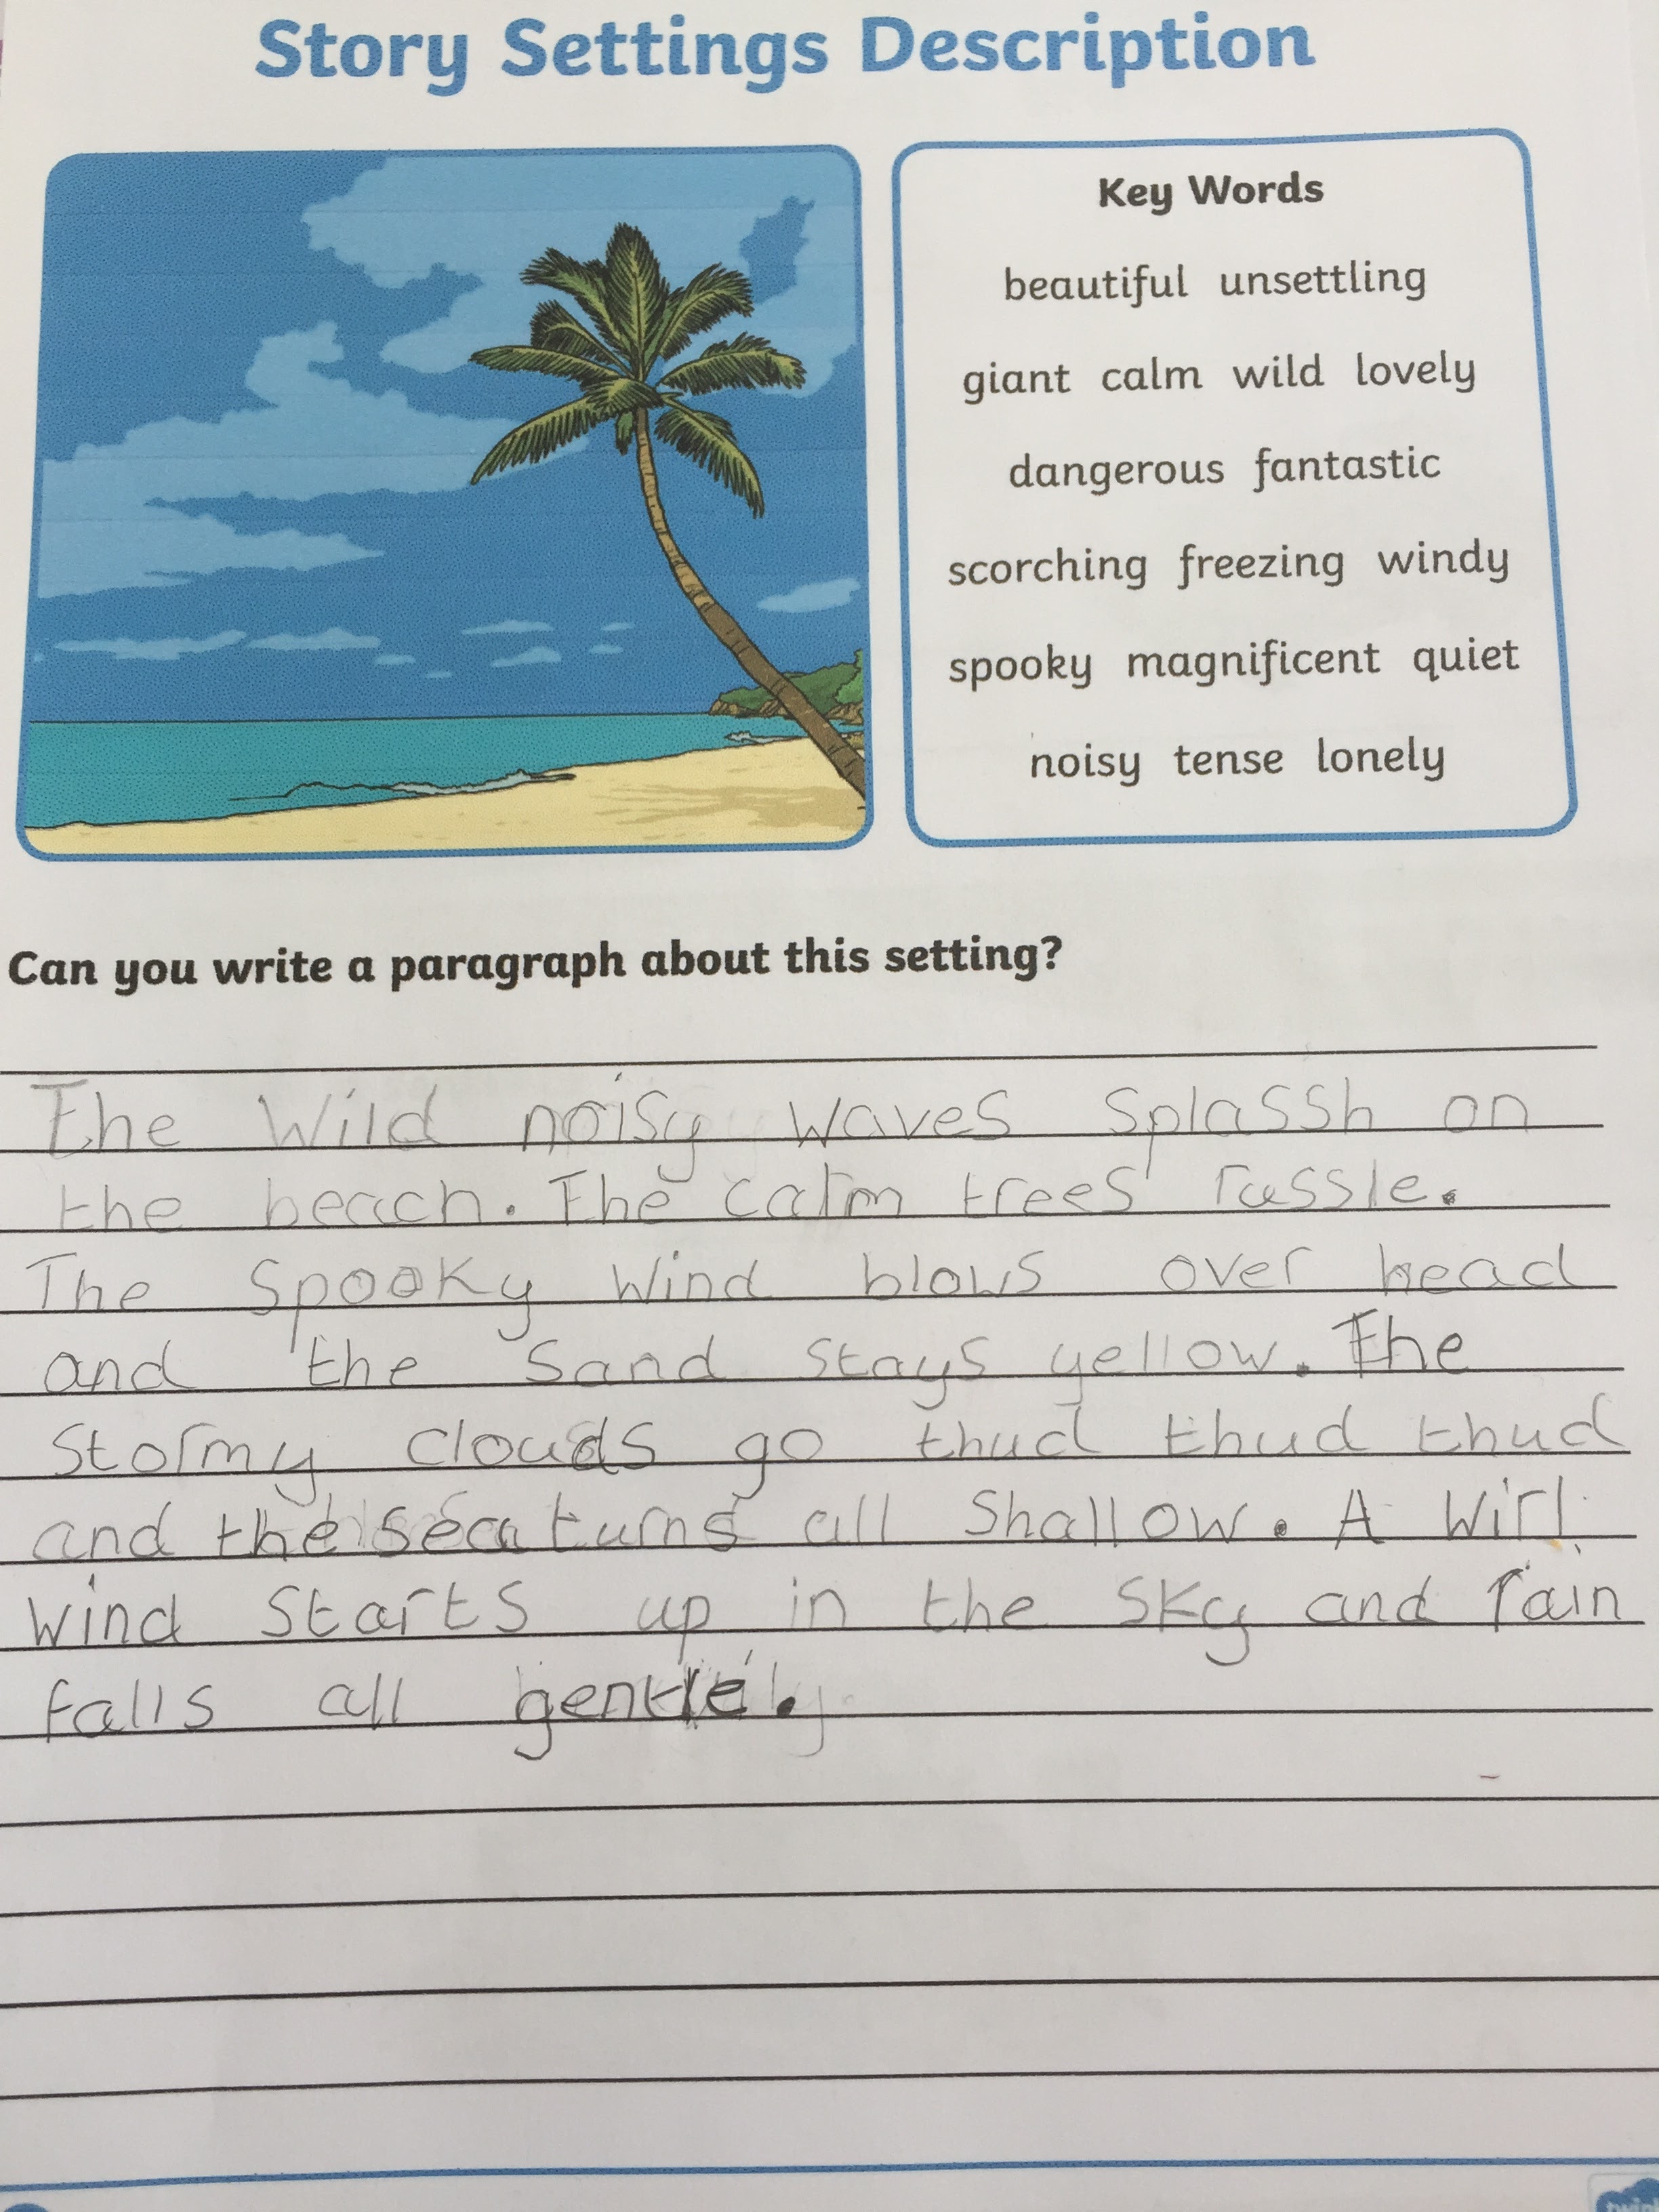 Story Settings Description
Key Words
beautiful unsettling
giant calm wild lovely
dangerous fantastic
scorching freezing windy
spooky magnificent quiet
noisy tense lonely
Can you write a paragraph about this setting?
The Wild noisy waves Splassh on
the beach. The calm trees russle.
The Spooky Wind blows over head
and the Sand stays yellow. The
Stormy clouds go thud thud thud
and the sea turns all Shallow. A Wirl
wind Starts up in the Sky and rain
falls all